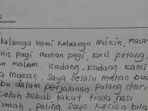 keluarga kami keluarga miskin, maca
pagi makan pagi, kari petang
malam. Kadang-kadang kami
makan. Saya selalu makan bu
bu dalam perjalanan pulang dari
oleh sebab takut tiada nasi
rumah, paling